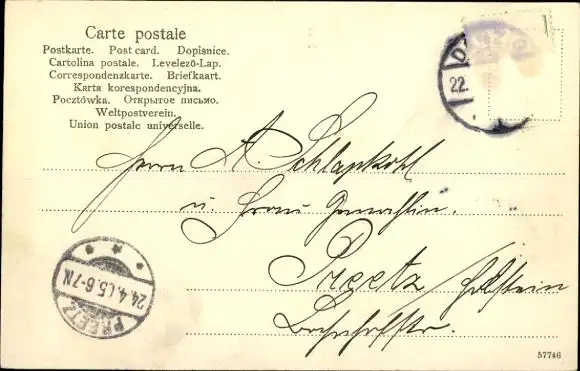 Carte postale
Postkarte. Post card. Dopisnice.
Cartolina postale. Levelező-Lap.
Correspondenzkarte. Briefkaart.
Karta korespondencyjna.
Pocztówka. Открытое письмо.
Weltpostverein.
Union postale universelle.
22.
Herrn A. Schlapkohl
u. Frau Gemahlin.
Preetz Holstein
24.4.05.6-7N.
PREETZ
57746